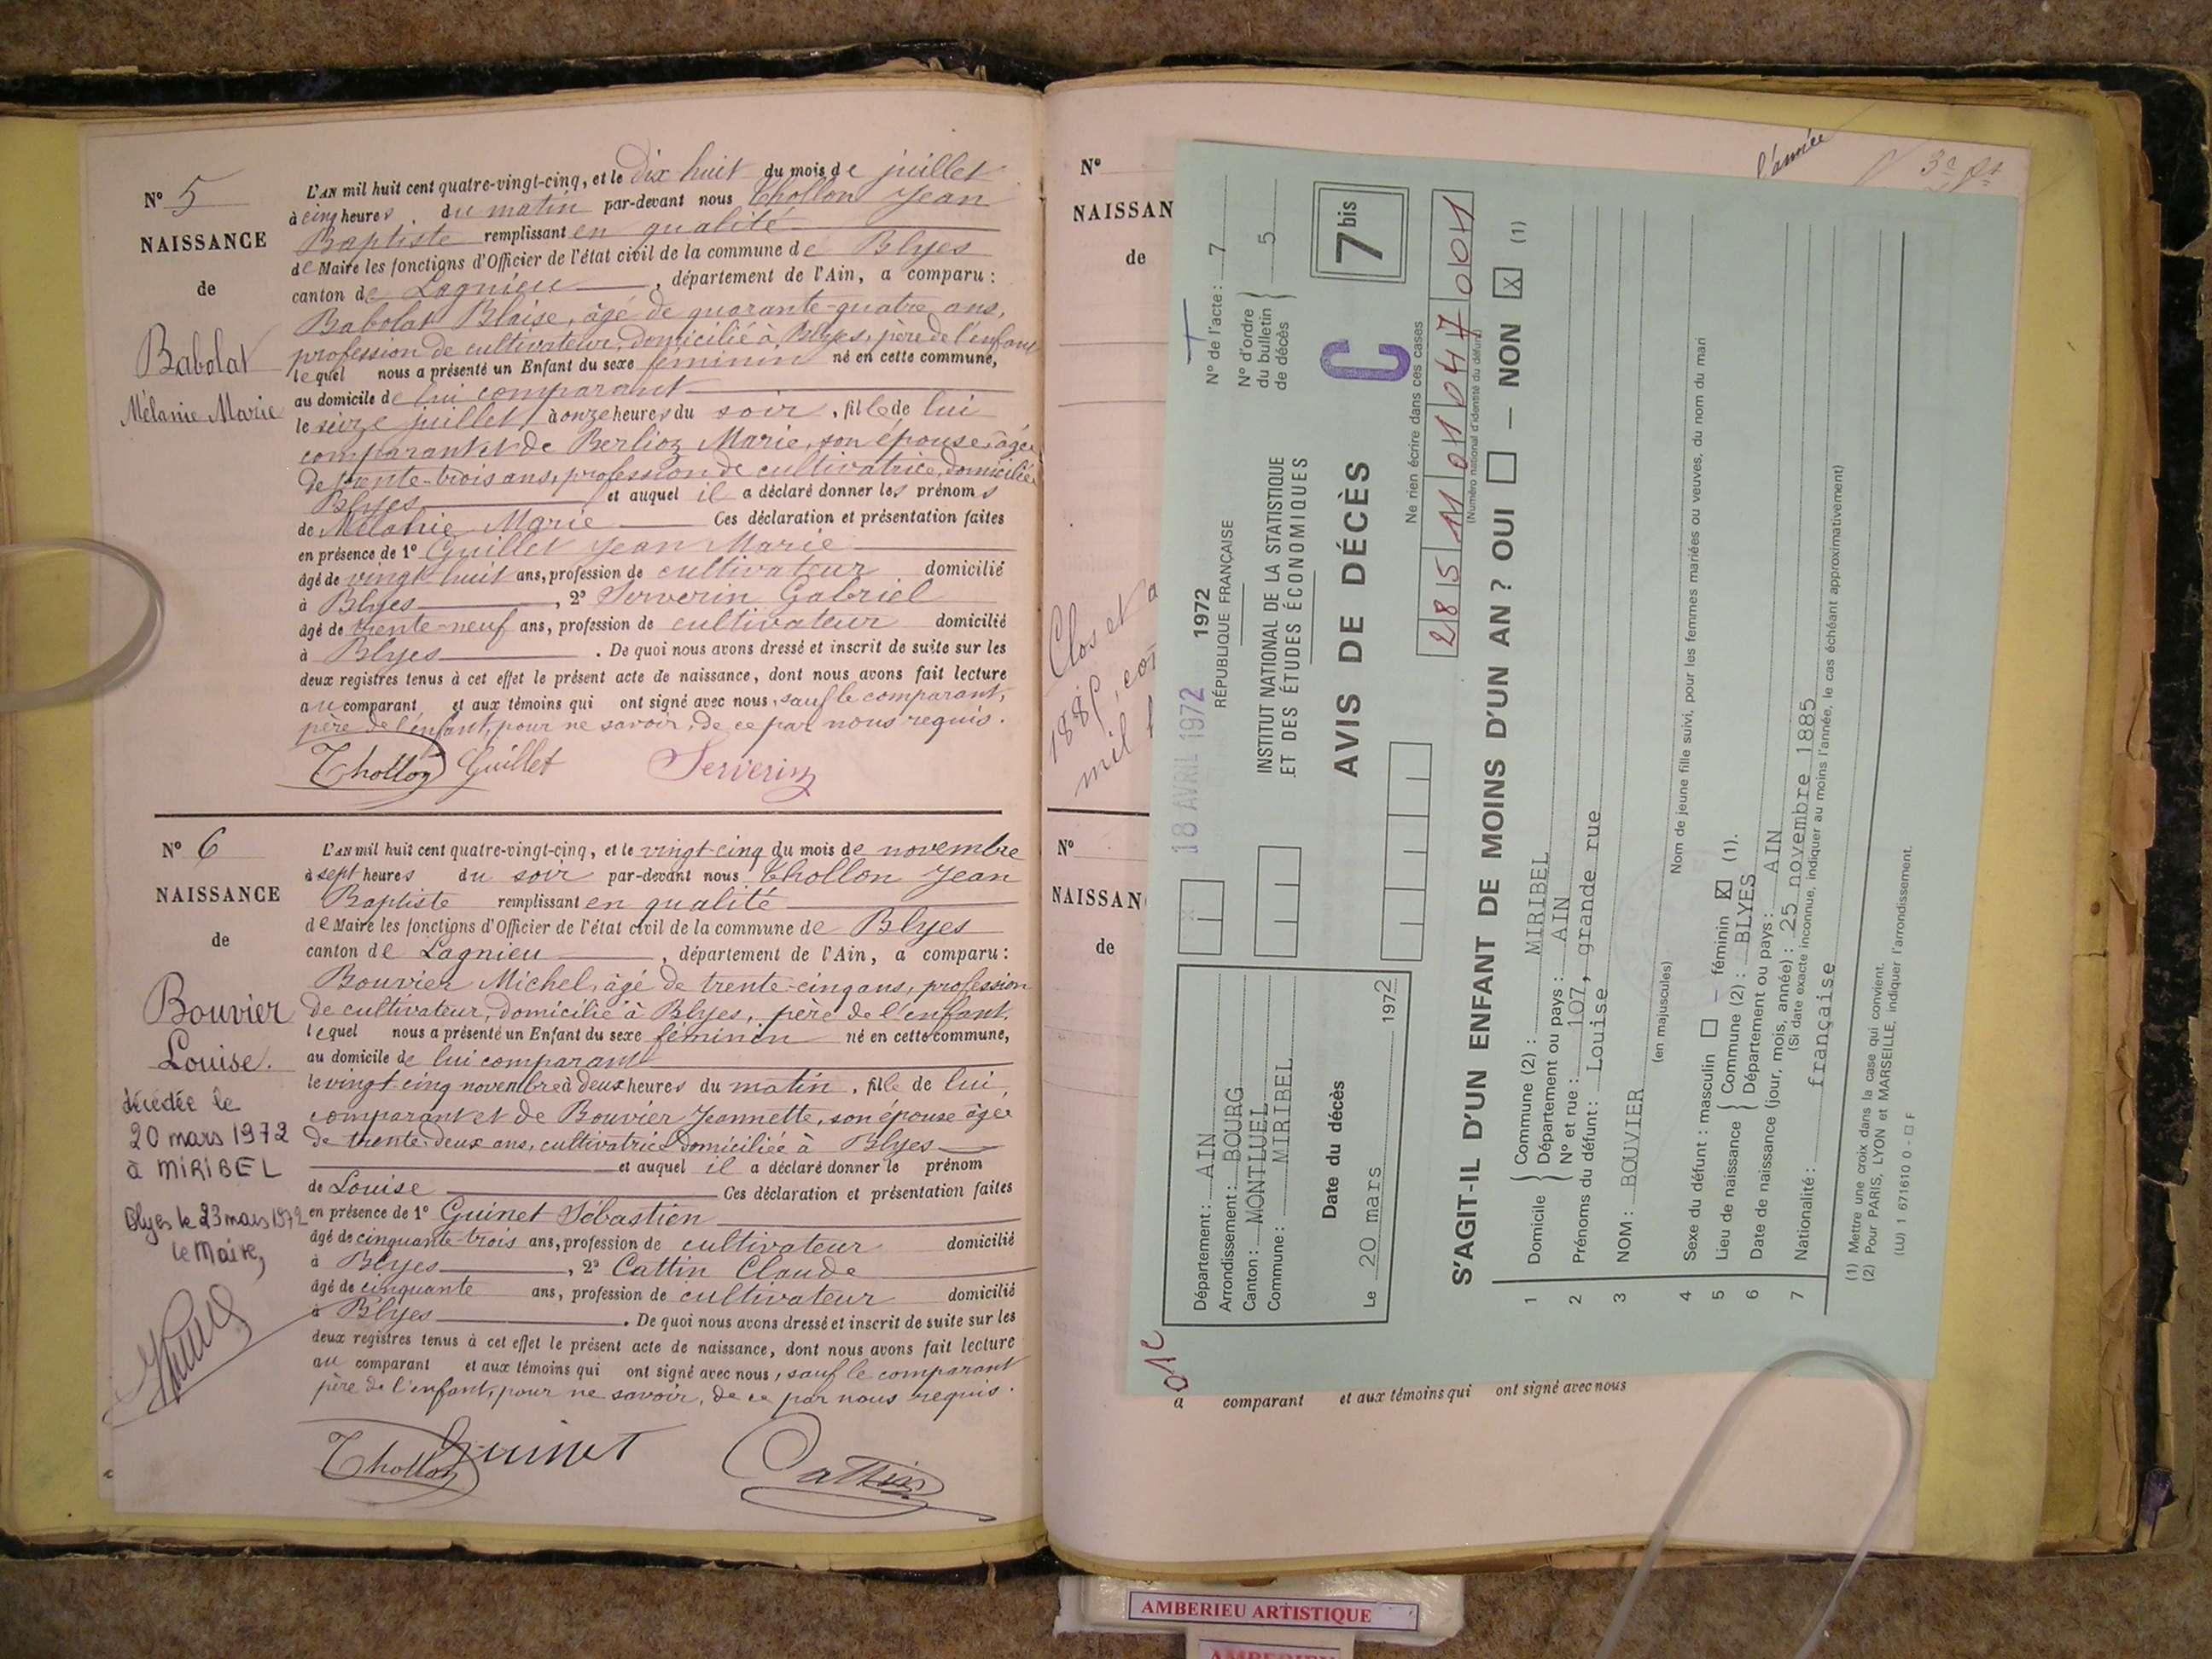 N° 5
NAISSANCE
de
Babolat
Mélanie Marie
L'AN mil huit cent quatre-vingt-cinq, et le dix huit du mois de juillet
à cinq heures du matin par-devant nous Thollon Jean
Baptiste remplissant en qualité
de Maire les fonctions d'Officier de l'état civil de la commune de Blyes
canton de Lagnieu, département de l'Ain, a comparu :
Babolat Blaise, âgé de quarante-quatre ans,
profession de cultivateur, domicilié à Blyes, père de l'enfant
lequel nous a présenté un Enfant du sexe féminin né en cette commune,
au domicile de lui comparant
le seize juillet à onze heures du soir, fille de lui
comparant et de Berlioz Marie, son épouse, âgée
de trente-trois ans, profession de cultivatrice, domiciliée
Blyes et auquel il a déclaré donner les prénoms
de Mélanie Marie Ces déclaration et présentation faites
en présence de 1° Guillet Jean Marie
âgé de vingt huit ans, profession de cultivateur domicilié
à Blyes, 2° Serverin Gabriel
âgé de trente-neuf ans, profession de cultivateur domicilié
à Blyes. De quoi nous avons dressé et inscrit de suite sur les
deux registres tenus à cet effet le présent acte de naissance, dont nous avons fait lecture
au comparant et aux témoins qui ont signé avec nous, sauf le comparant,
père de l'enfant, pour ne savoir, de ce par nous requis.
Thollon Guillet Serverin
N° 6
NAISSANCE
de
Bouvier
Louise.
décédée le
20 mars 1972
à MIRIBEL
Blyes le 23 mars 1972
le Maire,
L'AN mil huit cent quatre-vingt-cinq, et le vingt-cinq du mois de novembre
à sept heures du soir par-devant nous Thollon Jean
Baptiste remplissant en qualité
de Maire les fonctions d'Officier de l'état civil de la commune de Blyes
canton de Lagnieu, département de l'Ain, a comparu :
Bouvier Michel, âgé de trente-cinq ans, profession
de cultivateur, domicilié à Blyes, père de l'enfant,
lequel nous a présenté un Enfant du sexe féminin né en cette commune,
au domicile de lui comparant
le vingt-cinq novembre à deux heures du matin, fille de lui
comparant et de Bouvier Jeannette, son épouse âgée
de trente-deux ans, cultivatrice domiciliée à Blyes
et auquel il a déclaré donner le prénom
de Louise Ces déclaration et présentation faites
en présence de 1° Guinet Sébastien
âgé de cinquante-trois ans, profession de cultivateur domicilié
à Blyes, 2° Cattin Claude
âgé de cinquante ans, profession de cultivateur domicilié
à Blyes. De quoi nous avons dressé et inscrit de suite sur les
deux registres tenus à cet effet le présent acte de naissance, dont nous avons fait lecture
au comparant et aux témoins qui ont signé avec nous, sauf le comparant
père de l'enfant, pour ne savoir, de ce par nous requis.
Thollon Guinet Cattin
N°
NAISSAN
de
Clos et a
mil
N°
NAISSAN
de
l'année
a comparant et aux témoins qui ont signé avec nous
01c
18 AVRIL 1972
1972
RÉPUBLIQUE FRANÇAISE
INSTITUT NATIONAL DE LA STATISTIQUE
ET DES ÉTUDES ÉCONOMIQUES
AVIS DE DÉCÈS
N° de l'acte : 7
N° d'ordre
du bulletin
de décès
5
C
7 bis
Département : AIN
Arrondissement : BOURG
Canton : MONTLUEL
Commune : MIRIBEL
Date du décès
Le 20 mars 1972
Ne rien écrire dans ces cases
2 85 11 01 047 001
(Numéro national d'identité du défunt)
S'AGIT-IL D'UN ENFANT DE MOINS D'UN AN ? OUI — NON X (1)
1 Domicile Commune (2) : MIRIBEL
Département ou pays : AIN
N° et rue : 107, grande rue
2 Prénoms du défunt : Louise
3 NOM : BOUVIER
(en majuscules) Nom de jeune fille suivi, pour les femmes mariées ou veuves, du nom du mari
4 Sexe du défunt : masculin — féminin X (1).
5 Lieu de naissance Commune (2) : BLYES
Département ou pays : AIN
6 Date de naissance (jour, mois, année) : 25 novembre 1885
(Si date exacte inconnue, indiquer au moins l'année, le cas échéant approximativement)
7 Nationalité : française
(1) Mettre une croix dans la case qui convient.
(2) Pour PARIS, LYON et MARSEILLE, indiquer l'arrondissement.
(LU) 1 671610 0 - F
AMBERIEU ARTISTIQUE
AMBERIEU